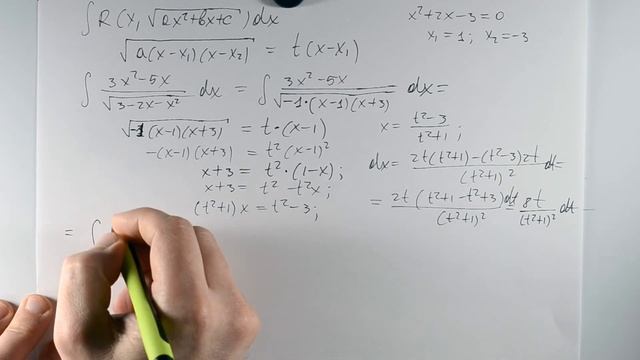 ∫R(x, √(ax²+bx+c))dx
√(a(x-x₁)(x-x₂)) = t(x-x₁)
x²+2x-3=0
x₁=1; x₂=-3
∫ (3x²-5x)/√(3-2x-x²) dx = ∫ (3x²-5x)/√(-1·(x-1)(x+3)) dx =
√(-1(x-1)(x+3)) = t·(x-1)
-(x-1)(x+3) = t²(x-1)²
x+3 = t²·(1-x);
x+3 = t²-t²x;
(t²+1)x = t²-3;
x = (t²-3)/(t²+1);
dx = (2t(t²+1)-(t²-3)2t)/(t²+1)² dt=
= (2t(t²+1-t²+3)dt)/(t²+1)² = 8t/(t²+1)² dt
= ∫